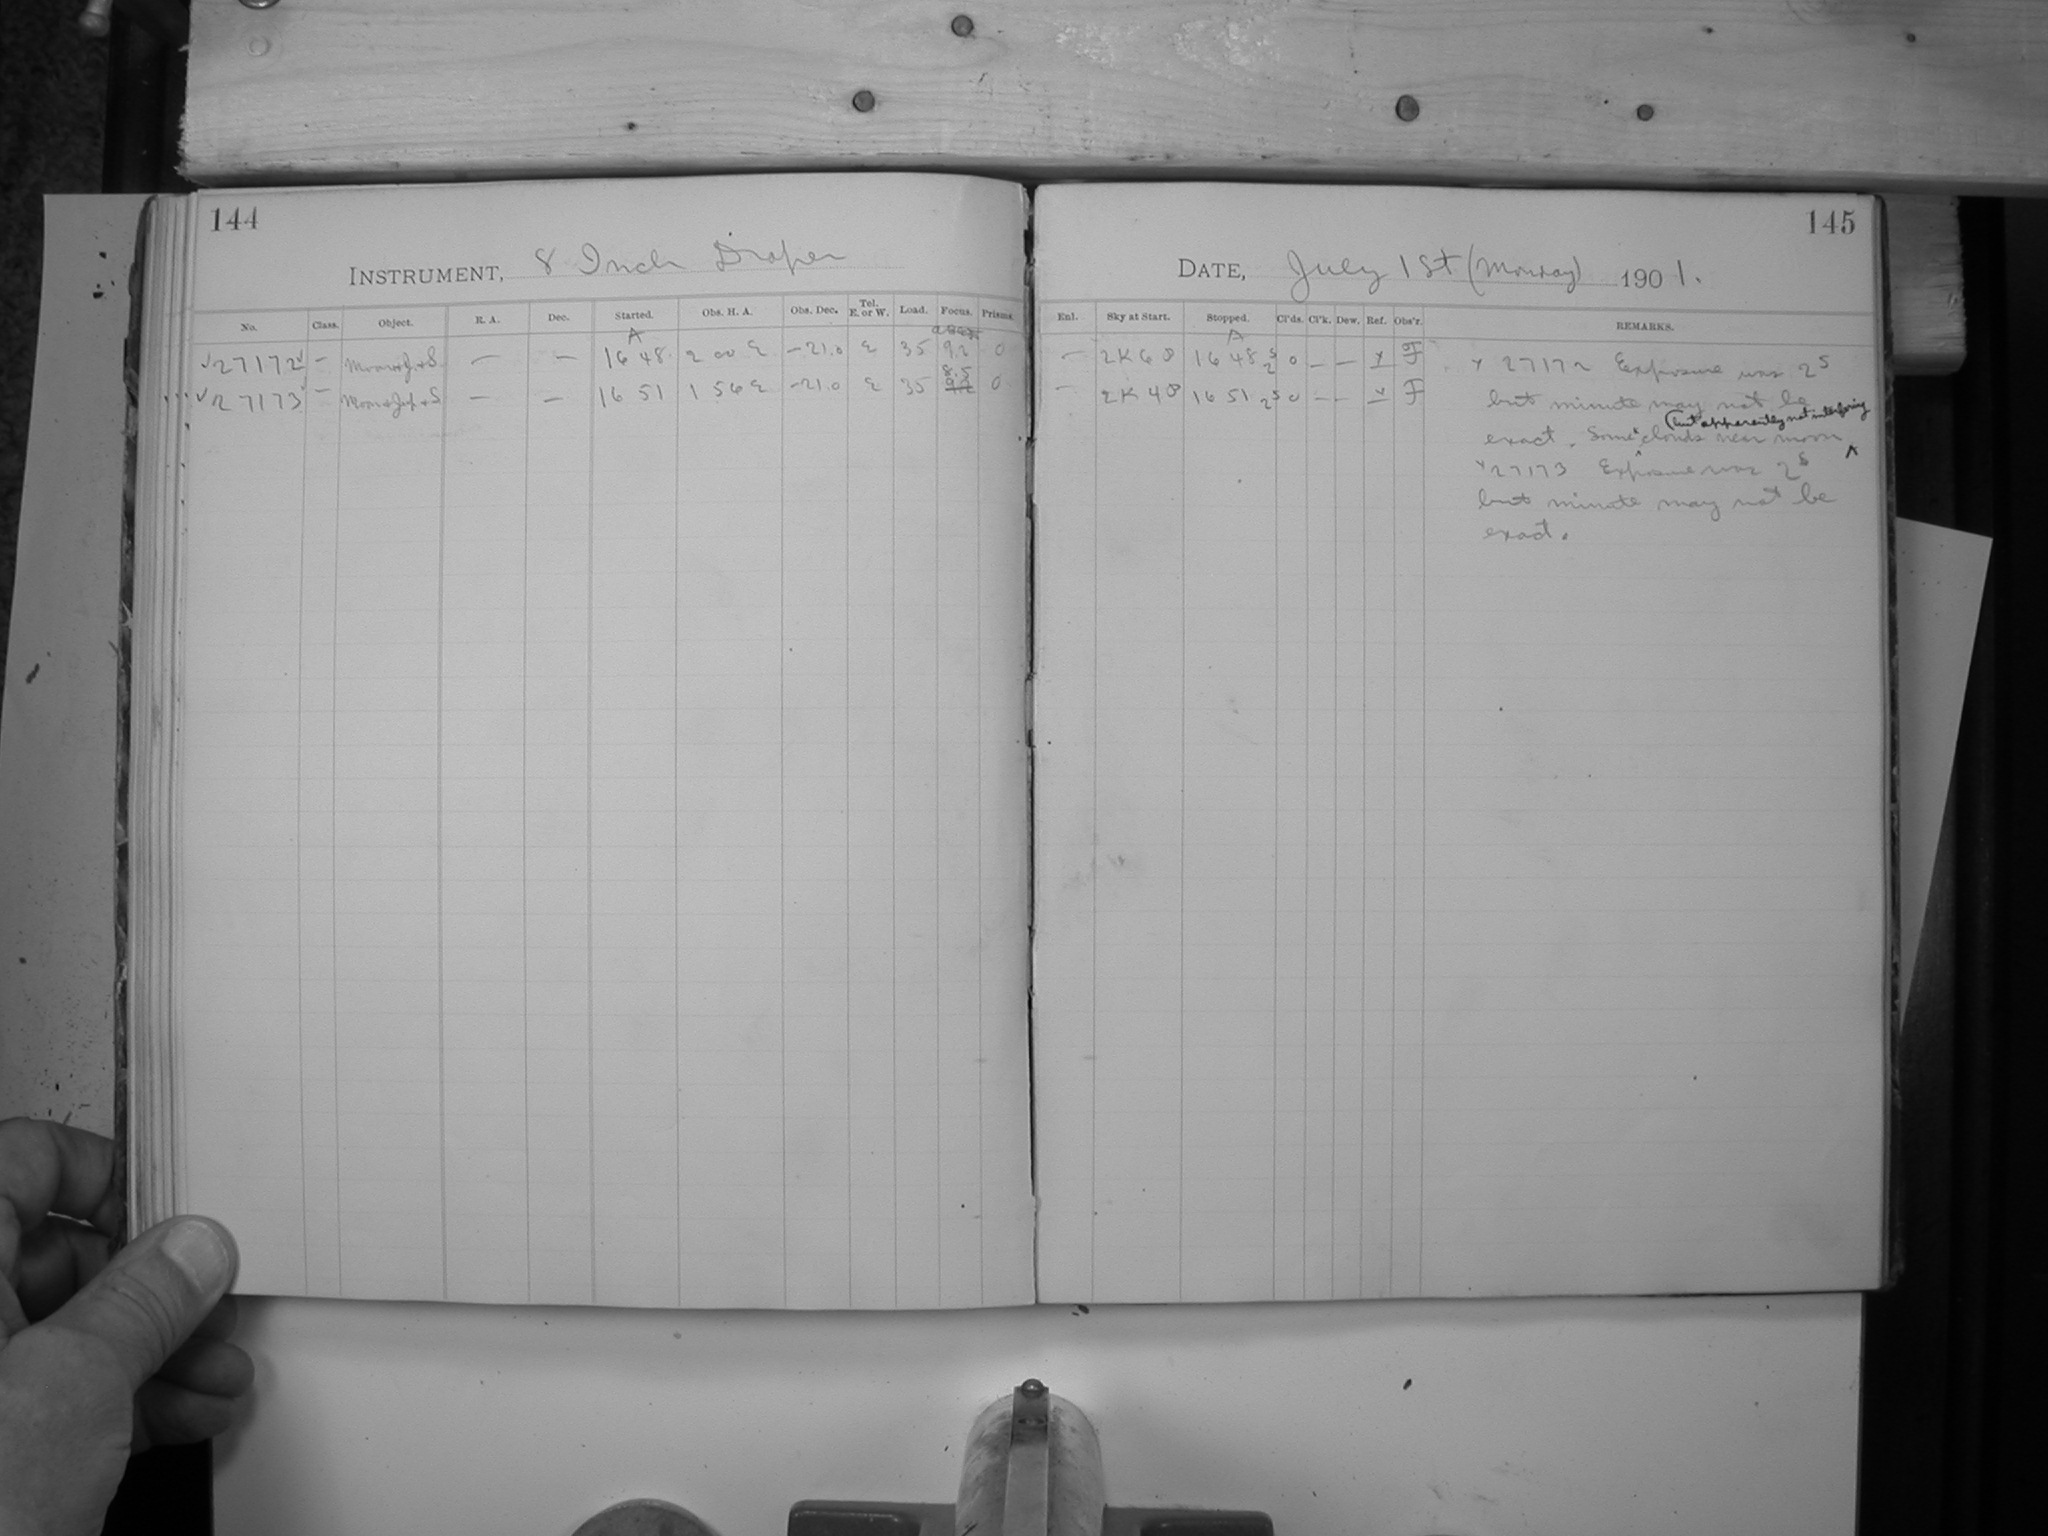 144
INSTRUMENT, 8 Inch Draper
No. Class. Object. R. A. Dec. Started. Obs. H. A. Obs. Dec. Tel. E. or W. Load. Focus. Prisms.
A
27172 — — — 16 48 2 00 E −21.0 E 35 9.2 0
8.5
27173 — — — 16 51 1 56 E −21.0 E 35 9.2 0
145
DATE, July 1st (Monday) 1901.
Enl. Sky at Start. Stopped. Cl'ds. Cl'k. Dew. Ref. Obs'r. REMARKS.
A
— 2K 6 8 16 48 2s 0 — — x F x 27172 Exposure was 2s
— 2K 4 8 16 51 2s 0 — — x F but minute may not be
(but apparently not interfering
exact. Some clouds near moon
x 27173 Exposure was 2s
but minute may not be
exact.